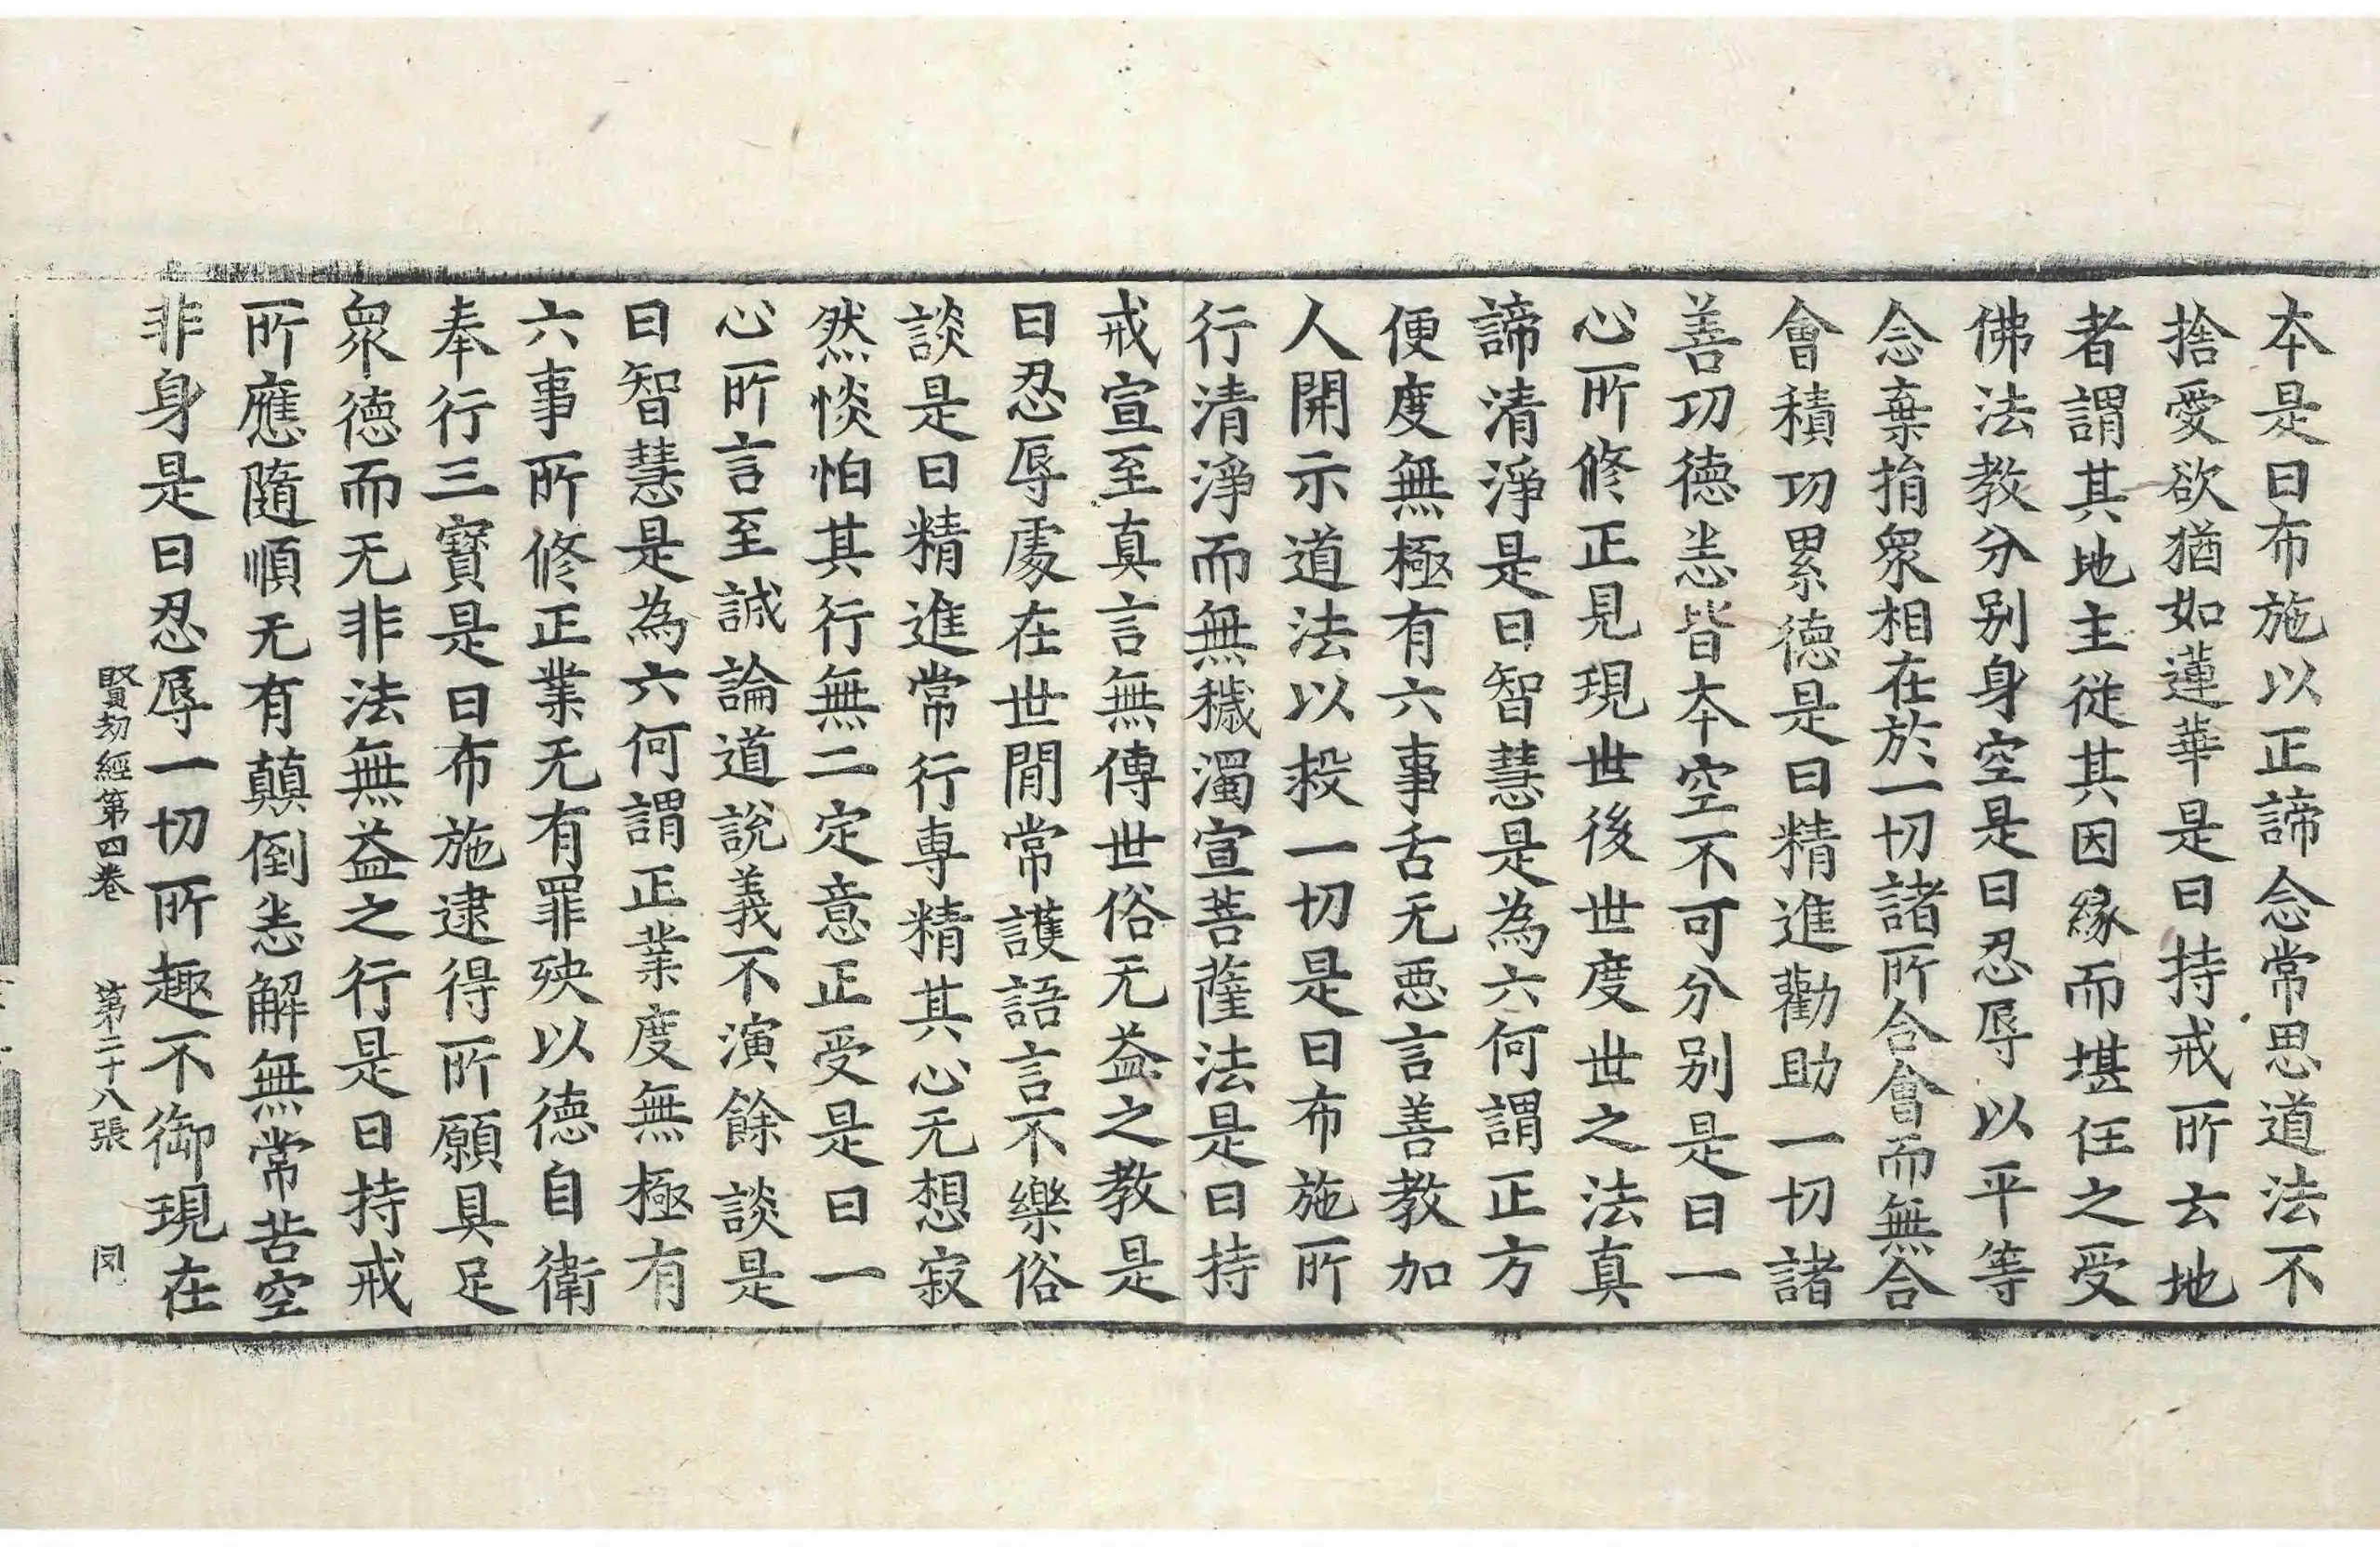 夲是曰布施以正諦念常思道法不
捨愛欲猶如蓮華是曰持戒所去地
者謂其地主從其因緣而堪任之受
佛法教分别身空是曰忍辱以平等
念棄捐衆相在於一切諸所合會而無合
會積功累德是曰精進勸助一切諸
善功德恙皆夲空不可分别是曰一
心所修正見現世後世度世之法真
諦清淨是曰智慧是為六何謂正方
便度無極有六事舌无惡言善教加
人開示道法以救一切是曰布施所
行清淨而無穢濁宣菩薩法是曰持
戒宣至真言無傳世俗无益之教是
曰忍辱處在世閒常護語言不樂俗
談是曰精進常行専精其心无想寂
然惔怕其行無二定意正受是曰一
心所言至誠論道說義不演餘談是
曰智慧是為六何謂正業度無極有
六事所修正業无有罪殃以德自衛
奉行三寶是曰布施逮得所願具足
衆德而无非法無益之行是曰持戒
所應隨順无有顛倒恙解無常苦空
非身是曰忍辱一切所趣不御現在
賢劫經第四卷 第二十八張 㓙